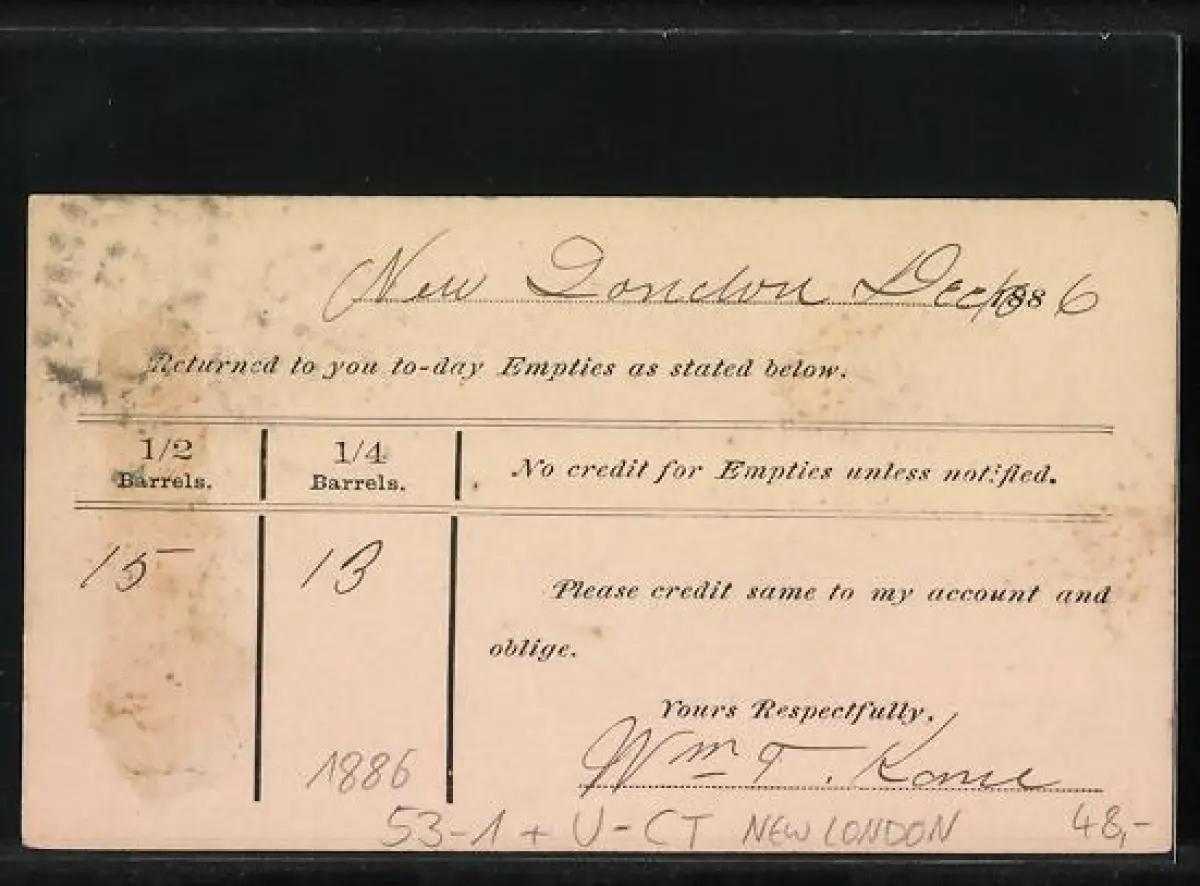 New London Dec 188 6
Returned to you to-day Empties as stated below.
1/2 Barrels.
1/4 Barrels.
No credit for Empties unless notified.
15
13
Please credit same to my account and
oblige.
Yours Respectfully,
Wm T. Kane
1886
53-1 + U-CT NEW LONDON
48,-